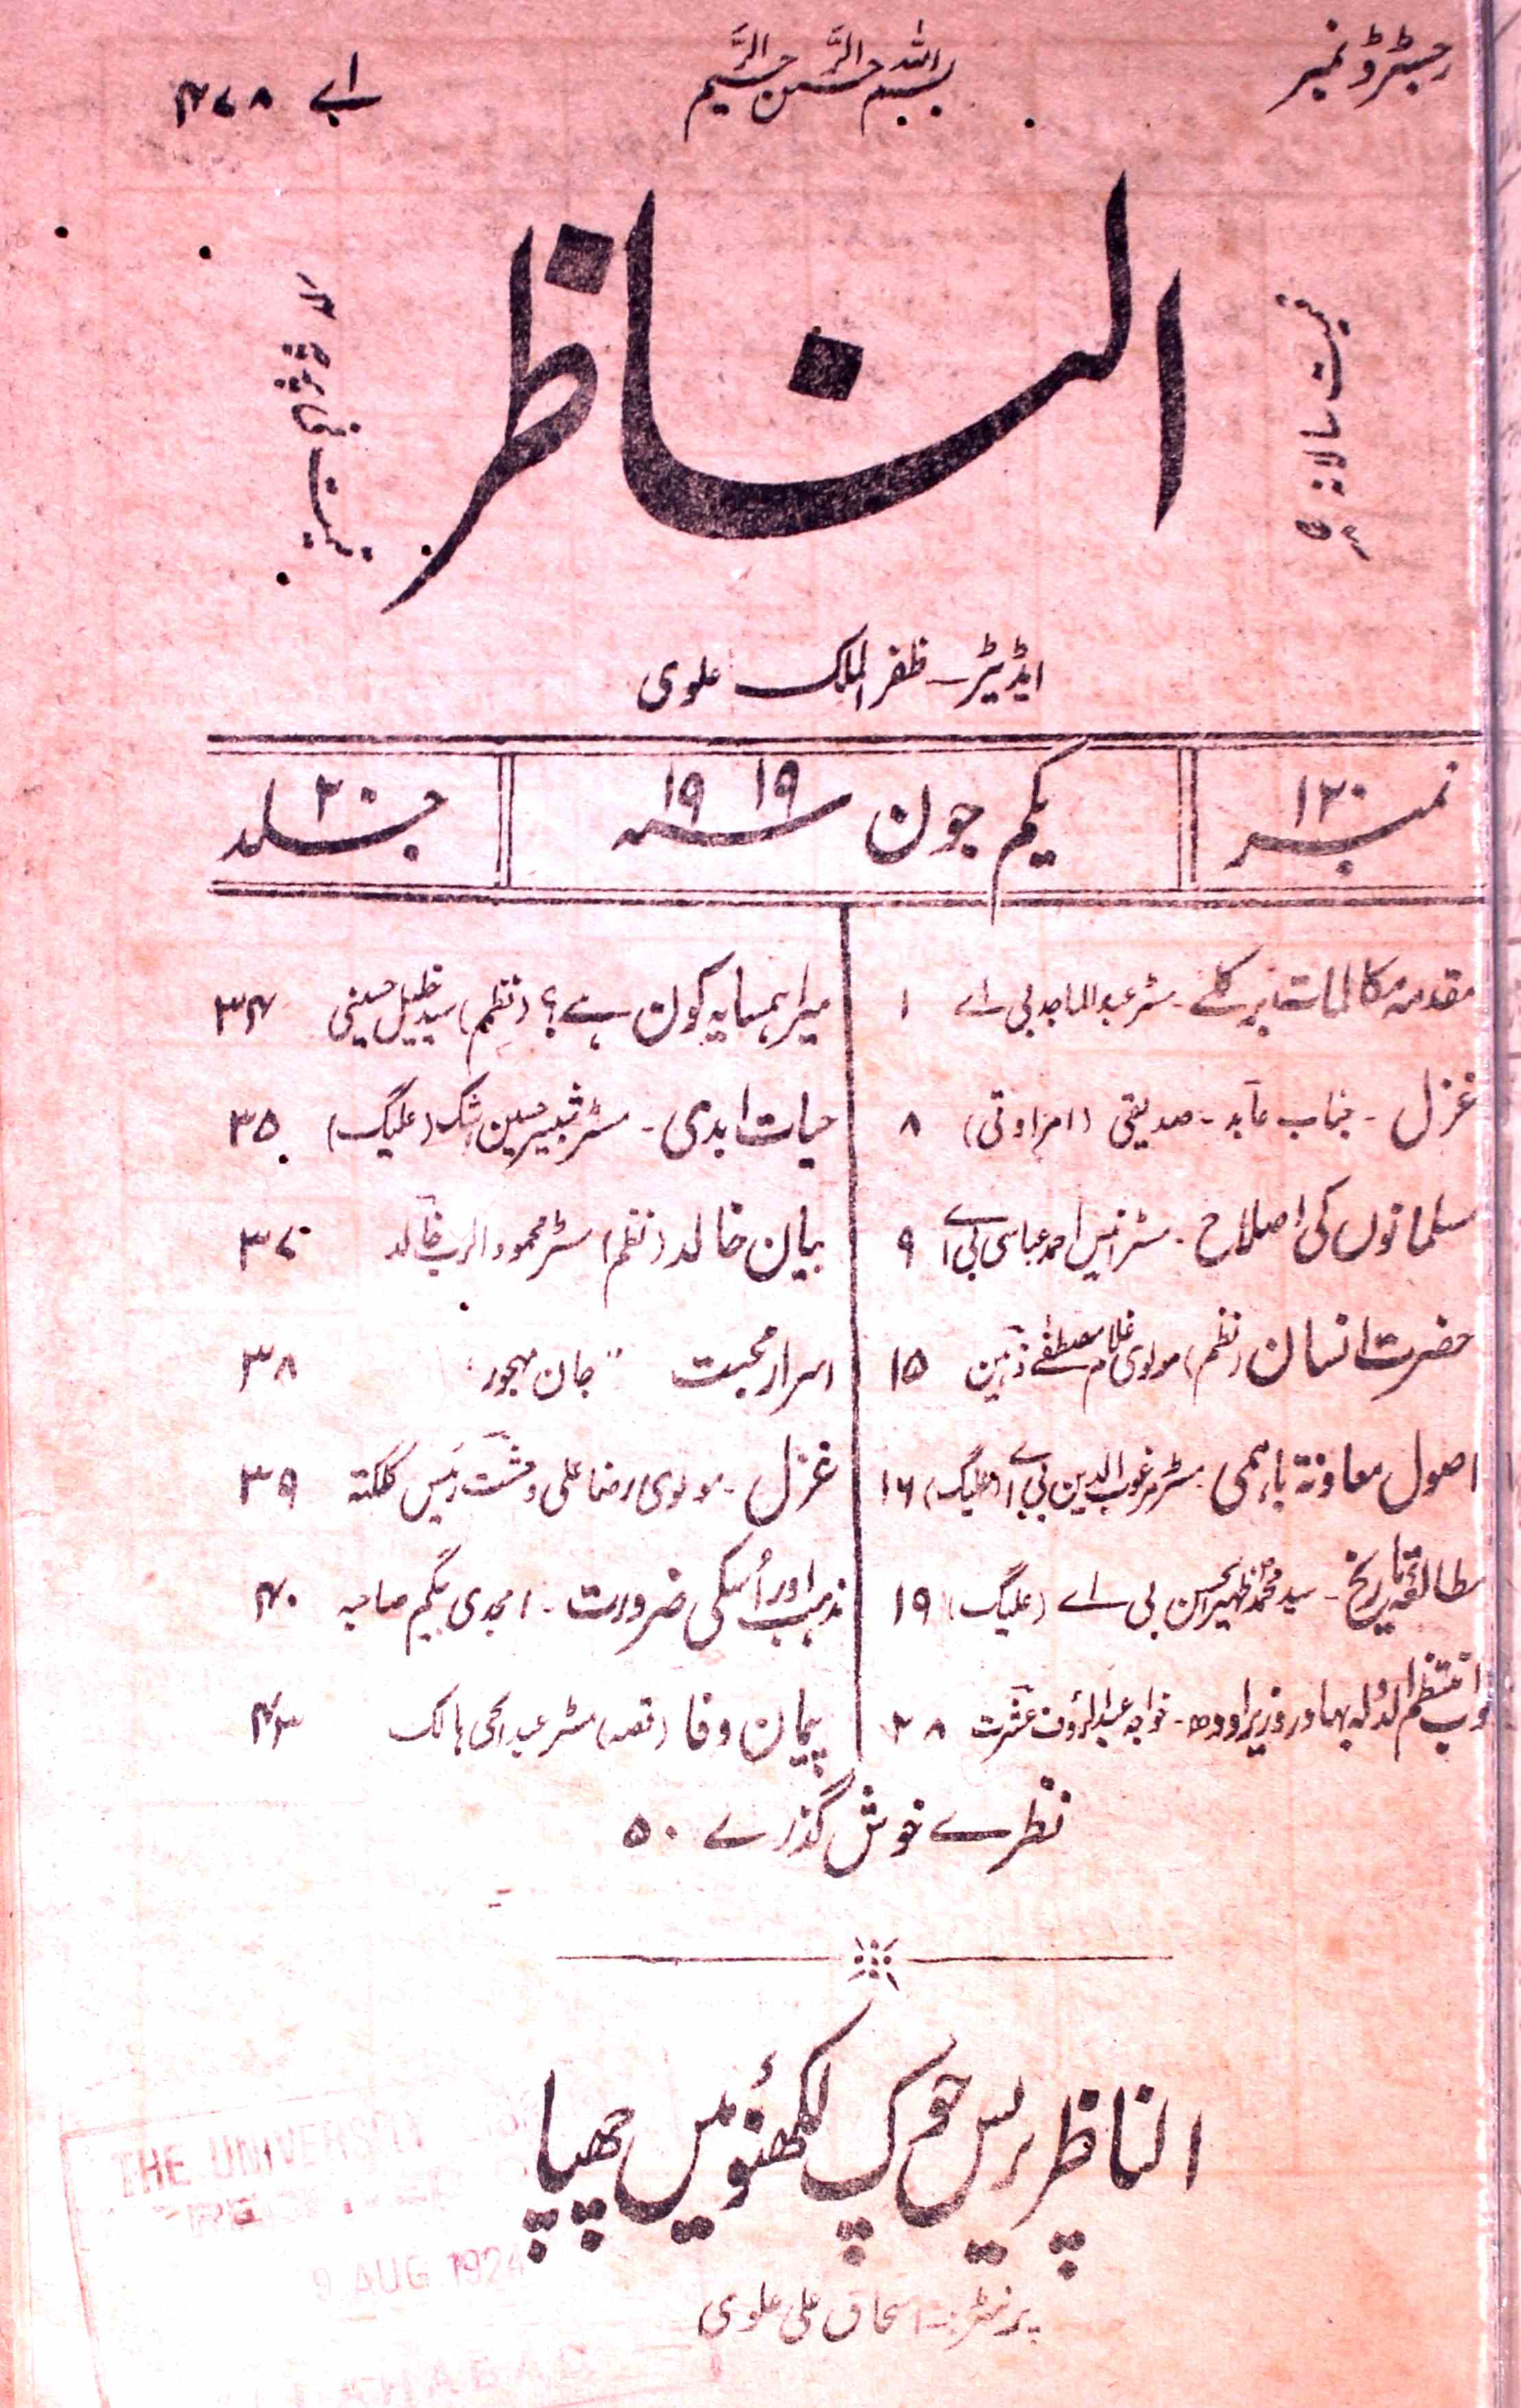 رجسٹرڈ نمبر
بسم اللہ الرحمن الرحیم
اے ۴۷۸
قیمت سالانہ
الناظر
قیمت فی پرچہ
ایڈیٹر۔ ظفر الملک علوی
نمبر ۱۲۰
یکم جون سنہ ۱۹۱۹
جلد ۲۰
مقدمہ مکالمات برکلے۔ مسٹر عبدالماجد بی اے ۱
غزل۔ جناب عابد۔ صدیقی (امراوتی) ۸
مسلمانوں کی اصلاح۔ مسٹر انیس احمد عباسی بی اے ۹
حضرت انسان (نظم) مولوی غلام مصطفےٰ ذہین ۱۵
اصول معاونۃ باہمی۔ مسٹر مرغوب الدین بی اے (علیگ) ۱۶
مطالعۂ تاریخ۔ سید محمد ظہیر الحسن بی اے (علیگ) ۱۹
نواب منتظم الدولہ بہادر وزیر اودھ۔ خواجہ عبدالرؤف عشرت ۲۸
میرا ہمسایہ کون ہے؟ (نظم) سید خلیل حسینی ۳۴
حیات ابدی۔ مسٹر شبیر حسین (علیگ) ۳۵
بیان خالد (نظم) مسٹر محمود الرب خالد ۳۷
اسرار محبت "جان مہجور" ۳۸
غزل۔ مولوی رضا علی وحشت رئیس کلکتہ ۳۹
مذہب اور اُسکی ضرورت۔ امجدی بیگم صاحبہ ۴۰
پیمان وفا (قصہ) مسٹر عبدالحی ہالک ۴۳
نظرے خوش گذرے ۵۰
الناظر پریس چوک لکھنؤ میں چھپا
پرنٹر۔ اسحاق علی علوی
THE UNIVERSITY
9 AUG 1924